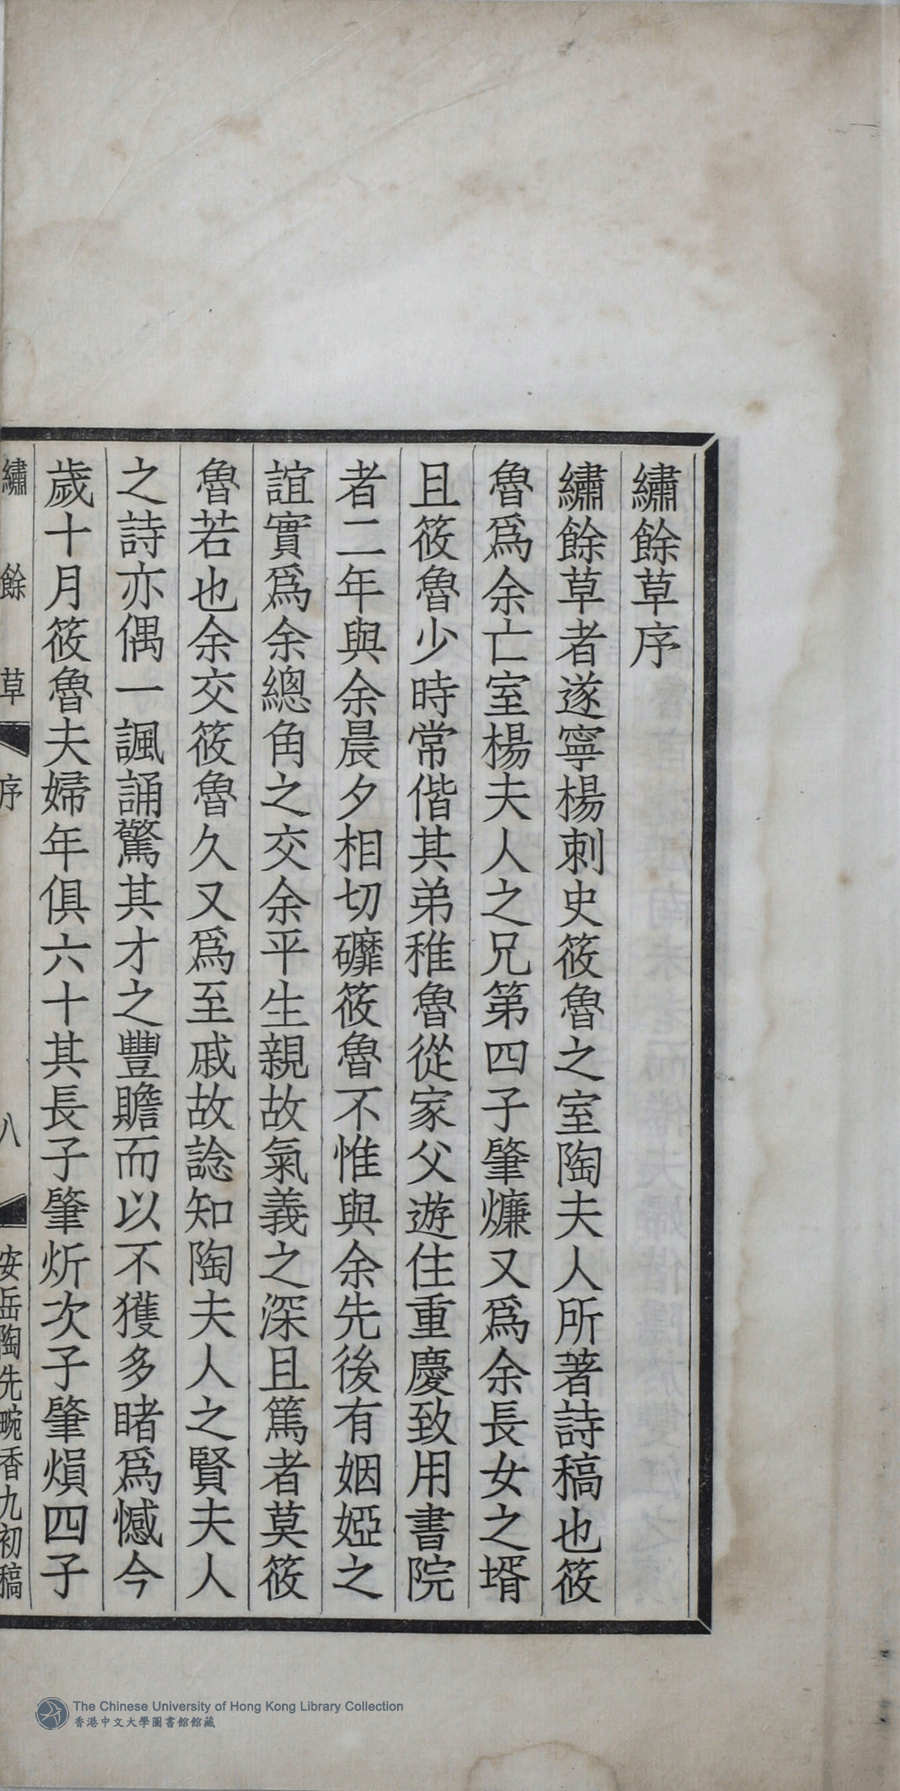 繡餘草序
繡餘草者遂寧楊刺史筱魯之室陶夫人所著詩稿也筱
魯爲余亡室楊夫人之兄第四子肇㷰又爲余長女之壻
且筱魯少時常偕其弟稚魯從家父遊住重慶致用書院
者二年與余晨夕相切礳筱魯不惟與余先後有姻婭之
誼實爲余總角之交余平生親故氣義之深且篤者莫筱
魯若也余交筱魯久又爲至戚故諗知陶夫人之賢夫人
之詩亦偶一諷誦驚其才之豐贍而以不獲多睹爲憾今
歲十月筱魯夫婦年俱六十其長子肇炘次子肇熉四子
繡餘草 序 八 安岳陶先畹香九初稿
The Chinese University of Hong Kong Library Collection
香港中文大學圖書館館藏